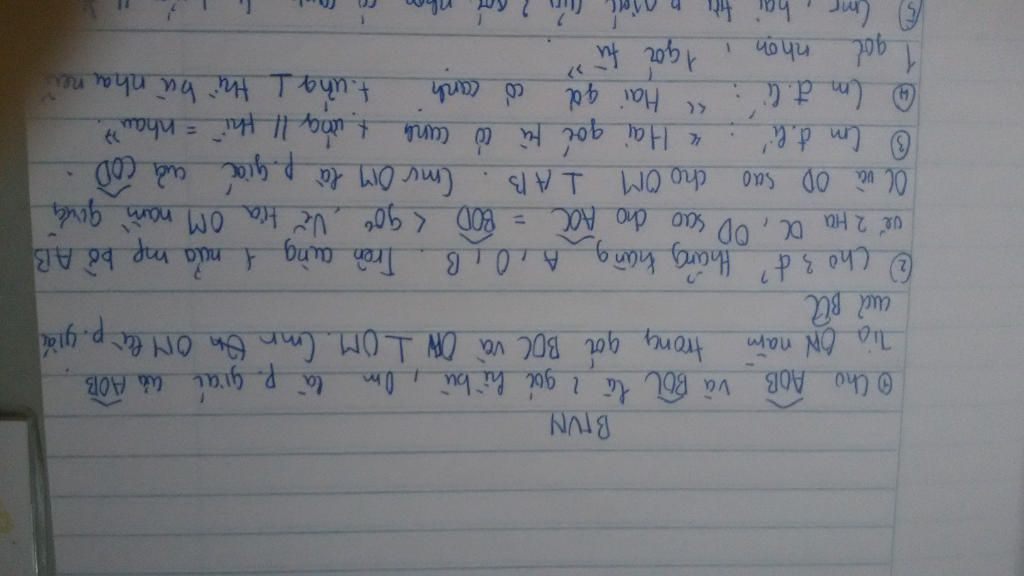 BTVN
① Cho AOB và BOC là 2 góc kề bù, Om là p.giác của AOB
Tia ON nằm trong góc BOC và ON ⊥ OM. Cmr OM là p.giác
của BOC
② Cho 3 đ' thẳng hàng A, O, B. Trên cùng 1 nửa mp bờ AB
vẽ 2 tia OC, OD sao cho AOC = BOD < 90°. Vẽ tia OM nằm giữa
OC và OD sao cho OM ⊥ AB. Cmr OM là p.giác của COD.
③ Cm đ.lí: « Hai góc tù có cạnh t.ứng // thì = nhau »
④ Cm đ.lí: « Hai góc có cạnh t.ứng ⊥ thì bù nhau nếu
1 góc nhọn, 1 góc tù »
⑤ Cmr, hai tia p.giác của 2 góc nhọn có cạnh